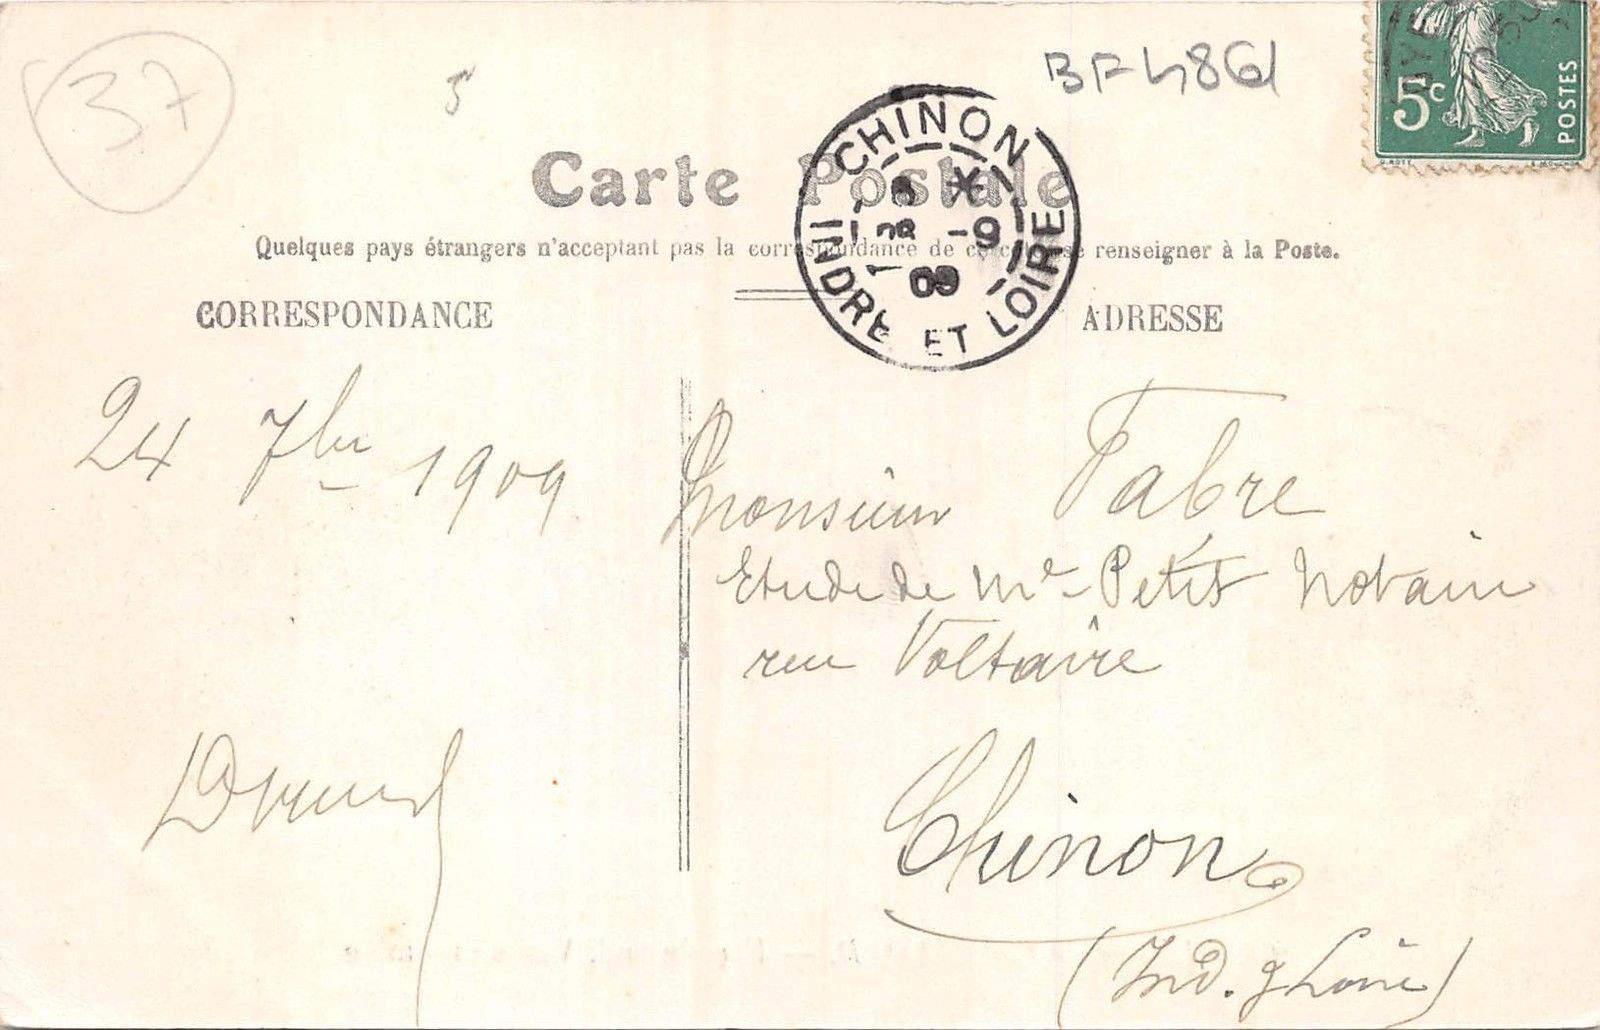 37
5
BF4861
5c
POSTES
Carte Postale
CHINON
INDRE ET LOIRE
-9
09
Quelques pays étrangers n'acceptant pas la correspondance de ce côté se renseigner à la Poste.
CORRESPONDANCE
ADRESSE
24 7bre 1909
Monsieur Fabre
Etude de Me Petit Notaire
rue Voltaire
Chinon
(Ind. & Loire)